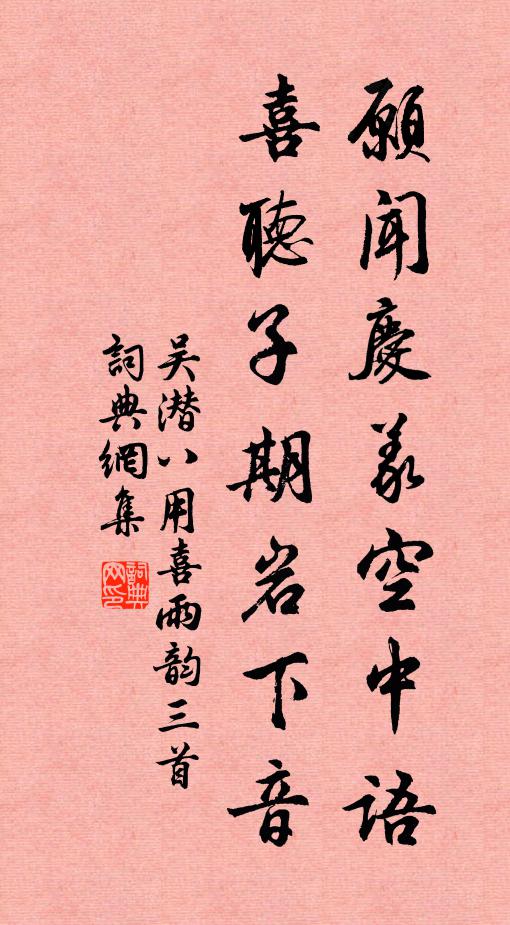 願聞慶羕空中語
喜聽子期岩下音
吴潜八用喜雨韵三首
詞典網集
詞典
网印